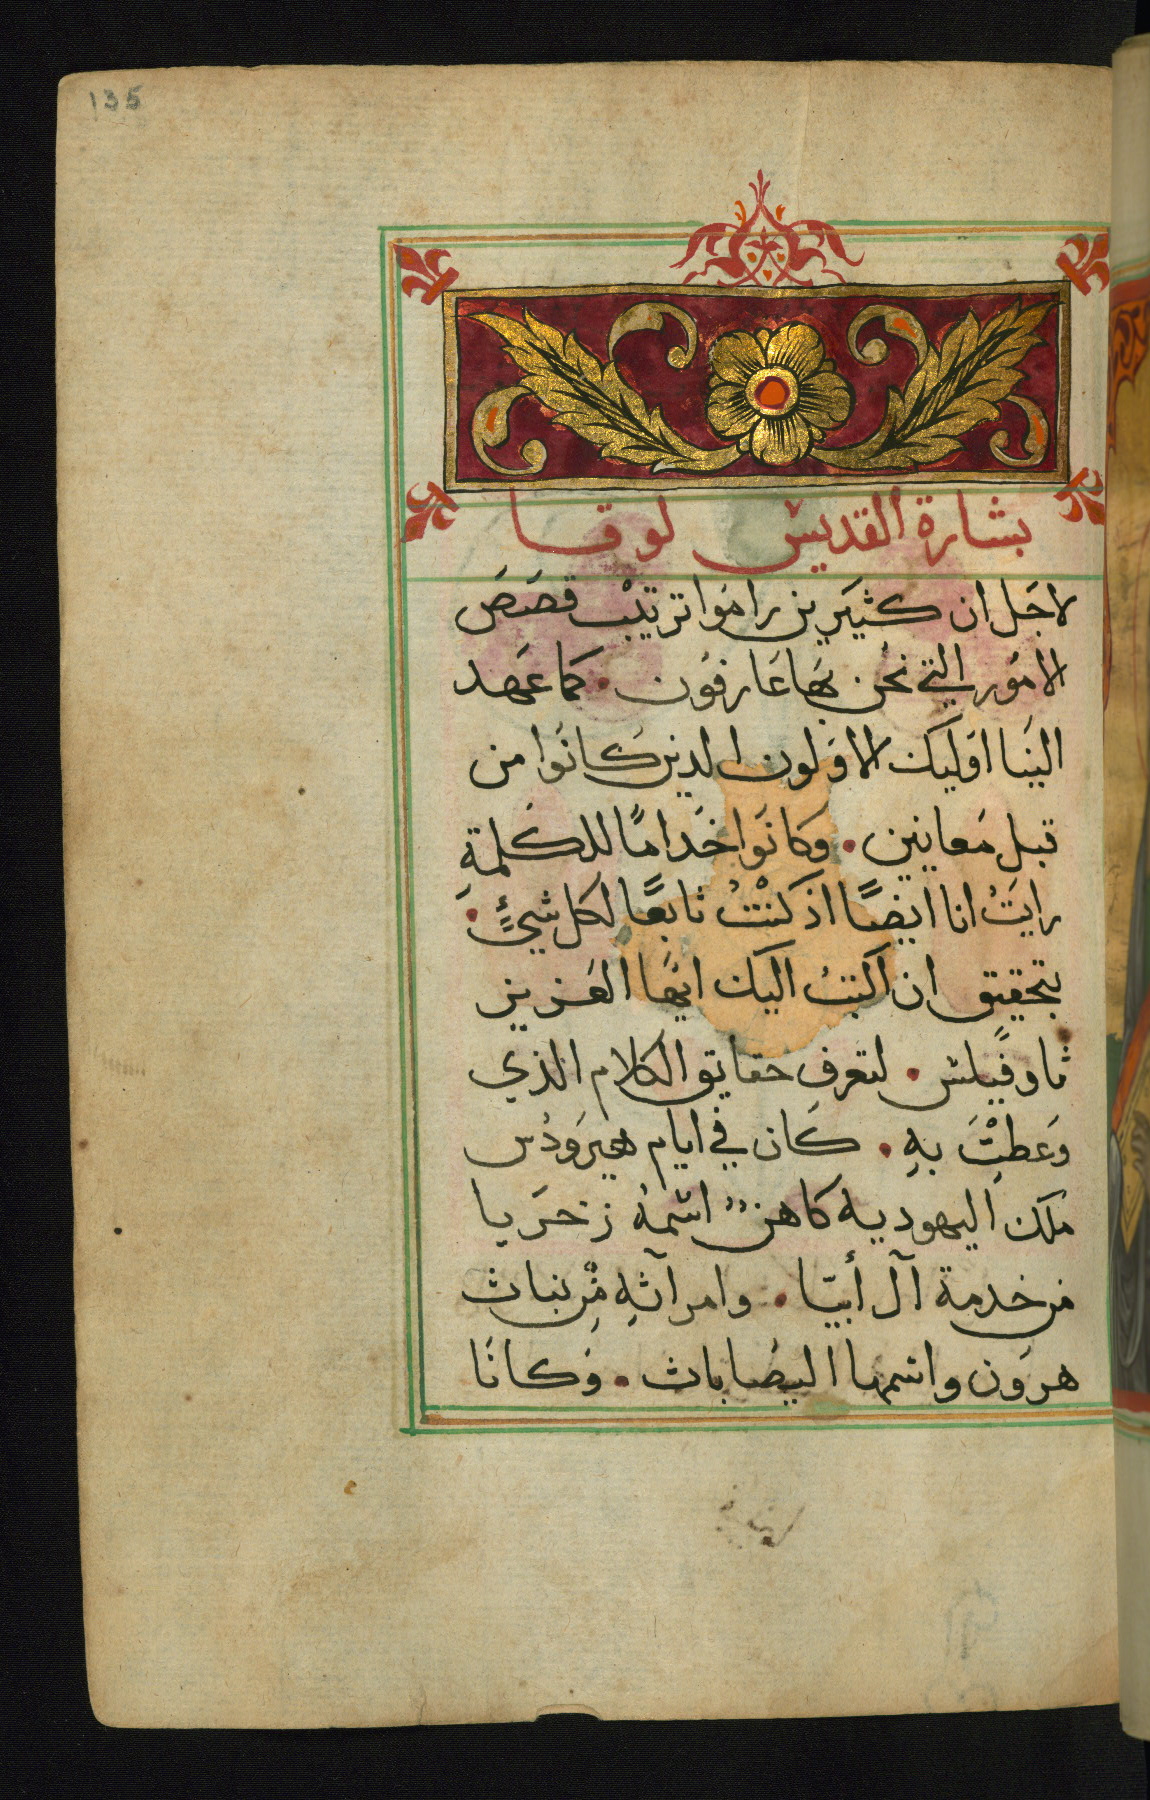 135
بشارة القديس لوقا
لاجَل ان كثيَرين رامَوا ترتيْب قصَصَ
الامَور التي نحُن بهَا عَارفوُن • كما عَهد
الينَا اوَليَك الاوَلون الدين كَانَوا من
قبل مَعاينين • وَكانَوا خَدامًا للكلمةِ
رايَتُ انا ايضًا اذ كنْتُ تابعًا لكل شيءٍ •
بتحقيق ان اكتبُ اليك ايهَا العَزيز
ثاوفَيلس • لتعرفِ حقايق الكلام الذي
وَعطِتْ بهِ • كَان في ايام هيروَدُس
ملك اليهوديه كاهنٌ اسمهُ زخرَيا
من خدمة آل أبيّا • وامرآتهِ مْن بنات
هروَن واسمها اليصَابات • وَكانَا